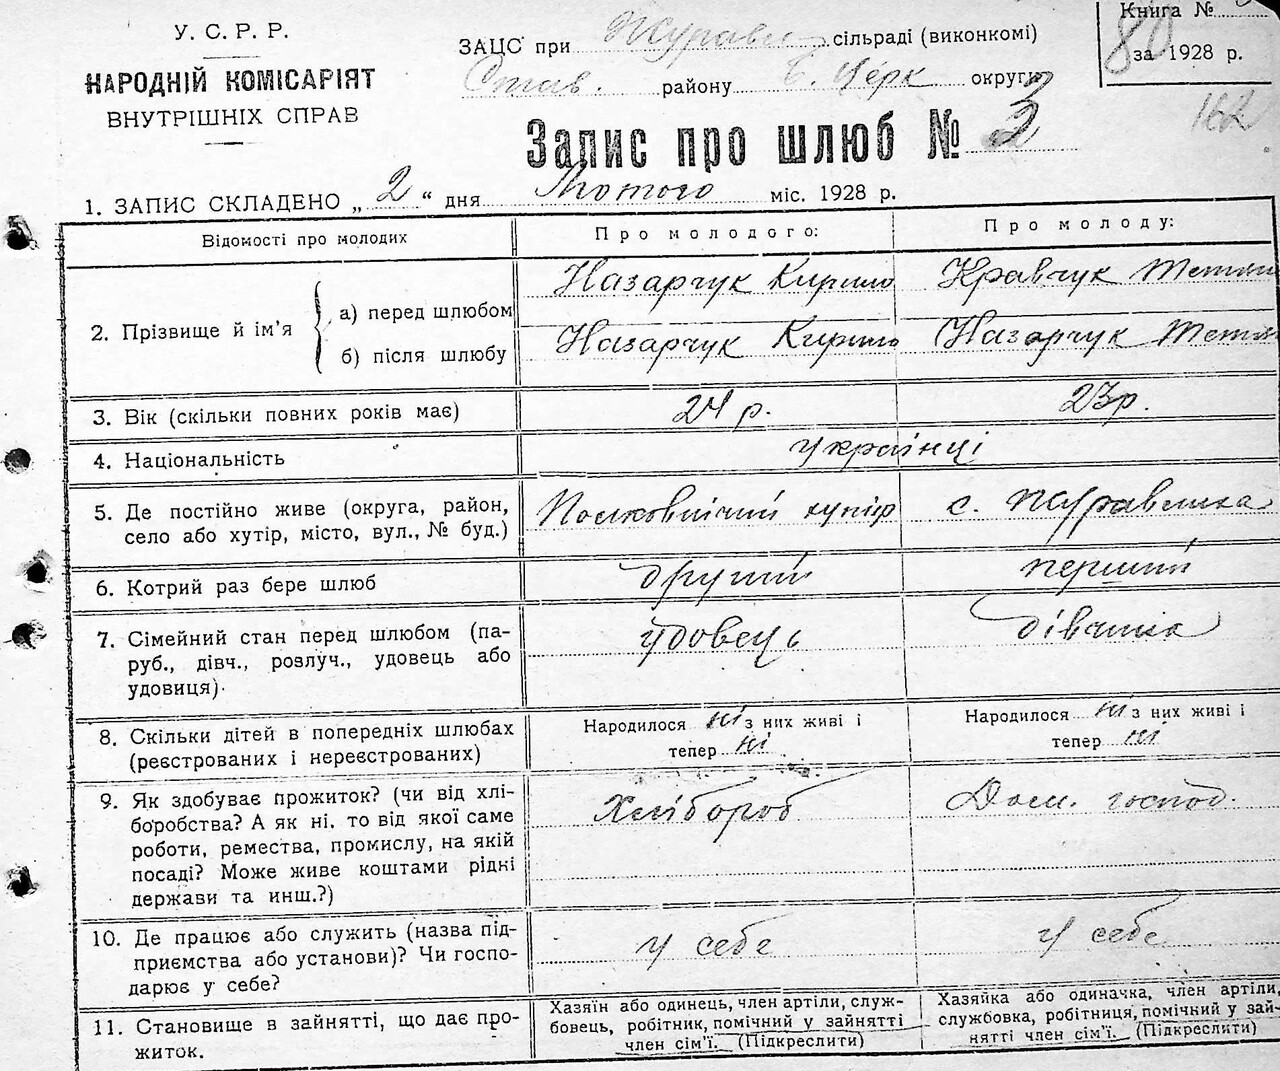 У. С. Р. Р.
НАРОДНІЙ КОМІСАРІЯТ
ВНУТРІШНІХ СПРАВ
ЗАЦС при Журавл. сільраді (виконкомі)
Став. району Б. Церк округи
Книга №
80
за 1928 р.
162
Запис про шлюб № 3
1. ЗАПИС СКЛАДЕНО „ 2 “ дня Лютого міс. 1928 р.
Відомості про молодих
Про молодого:
Про молоду:
2. Прізвище й ім’я
а) перед шлюбом
Назарчук Кирило
Кравчук Тетян
б) після шлюбу
Назарчук Кирило
Назарчук Тетян
3. Вік (скільки повних років має)
24 р.
23 р.
4. Національність
українці
5. Де постійно живе (округа, район,
село або хутір, місто, вул., № буд.)
хутір
с. Журавлиха
6. Котрий раз бере шлюб
другий
перший
7. Сімейний стан перед шлюбом (па-
руб., дівч., розлуч., удовець або
удовиця).
удовець
дівчина
8. Скільки дітей в попередніх шлюбах
(реєстрованих і нереєстрованих)
Народилося ні з них живі і
тепер ні
Народилося ні з них живі і
тепер ні
9. Як здобуває прожиток? (чи від хлі-
боробства? А як ні, то від якої саме
роботи, ремества, промислу, на якій
посаді? Може живе коштами рідні
держави та инш.?)
Хлібороб
Дом. господ.
10. Де працює або служить (назва під-
приємства або установи)? Чи госпо-
дарює у себе?
у себе
у себе
11. Становище в зайнятті, що дає про-
житок.
Хазяїн або одинець, член артілі, служ-
бовець, робітник, помічний у зайнятті
член сім’ї. (Підкреслити)
Хазяйка або одиначка, член артілі,
службовка, робітниця, помічний у зай-
нятті член сім’ї. (Підкреслити)